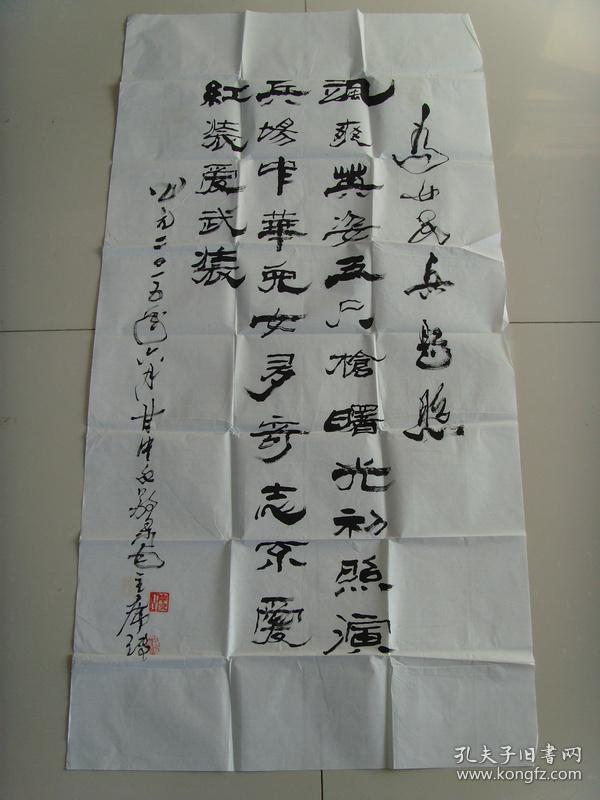 為女民兵題照
颯爽英姿五尺槍曙光初照演
兵場中華兒女多奇志不愛
紅装爱武装
公元二〇一五年六月甘中敬录毛主席诗
孔夫子旧书网
www.kongfz.com